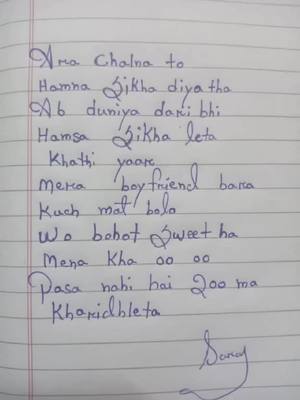 Ara Chalna to
Hamna Sikha diya tha
Ab duniya dari bhi
Hamsa Sikha leta
Khathi yaar
Mera boyfriend bara
Kuch mat bolo
Wo bohot Sweet ha
Mena kha oo oo
Pasa nahi hai 200 ma
Kharidhleta